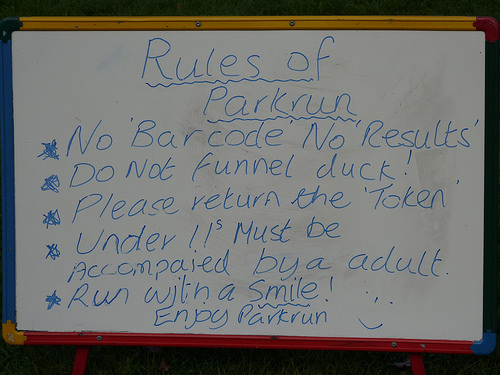 Rules of
Parkrun
No 'Barcode' No 'Results'
Do Not funnel duck!
Please return the 'Token'
Under 11s Must be
Accompaied by a adult.
Run with a Smile!
Enjoy Parkrun